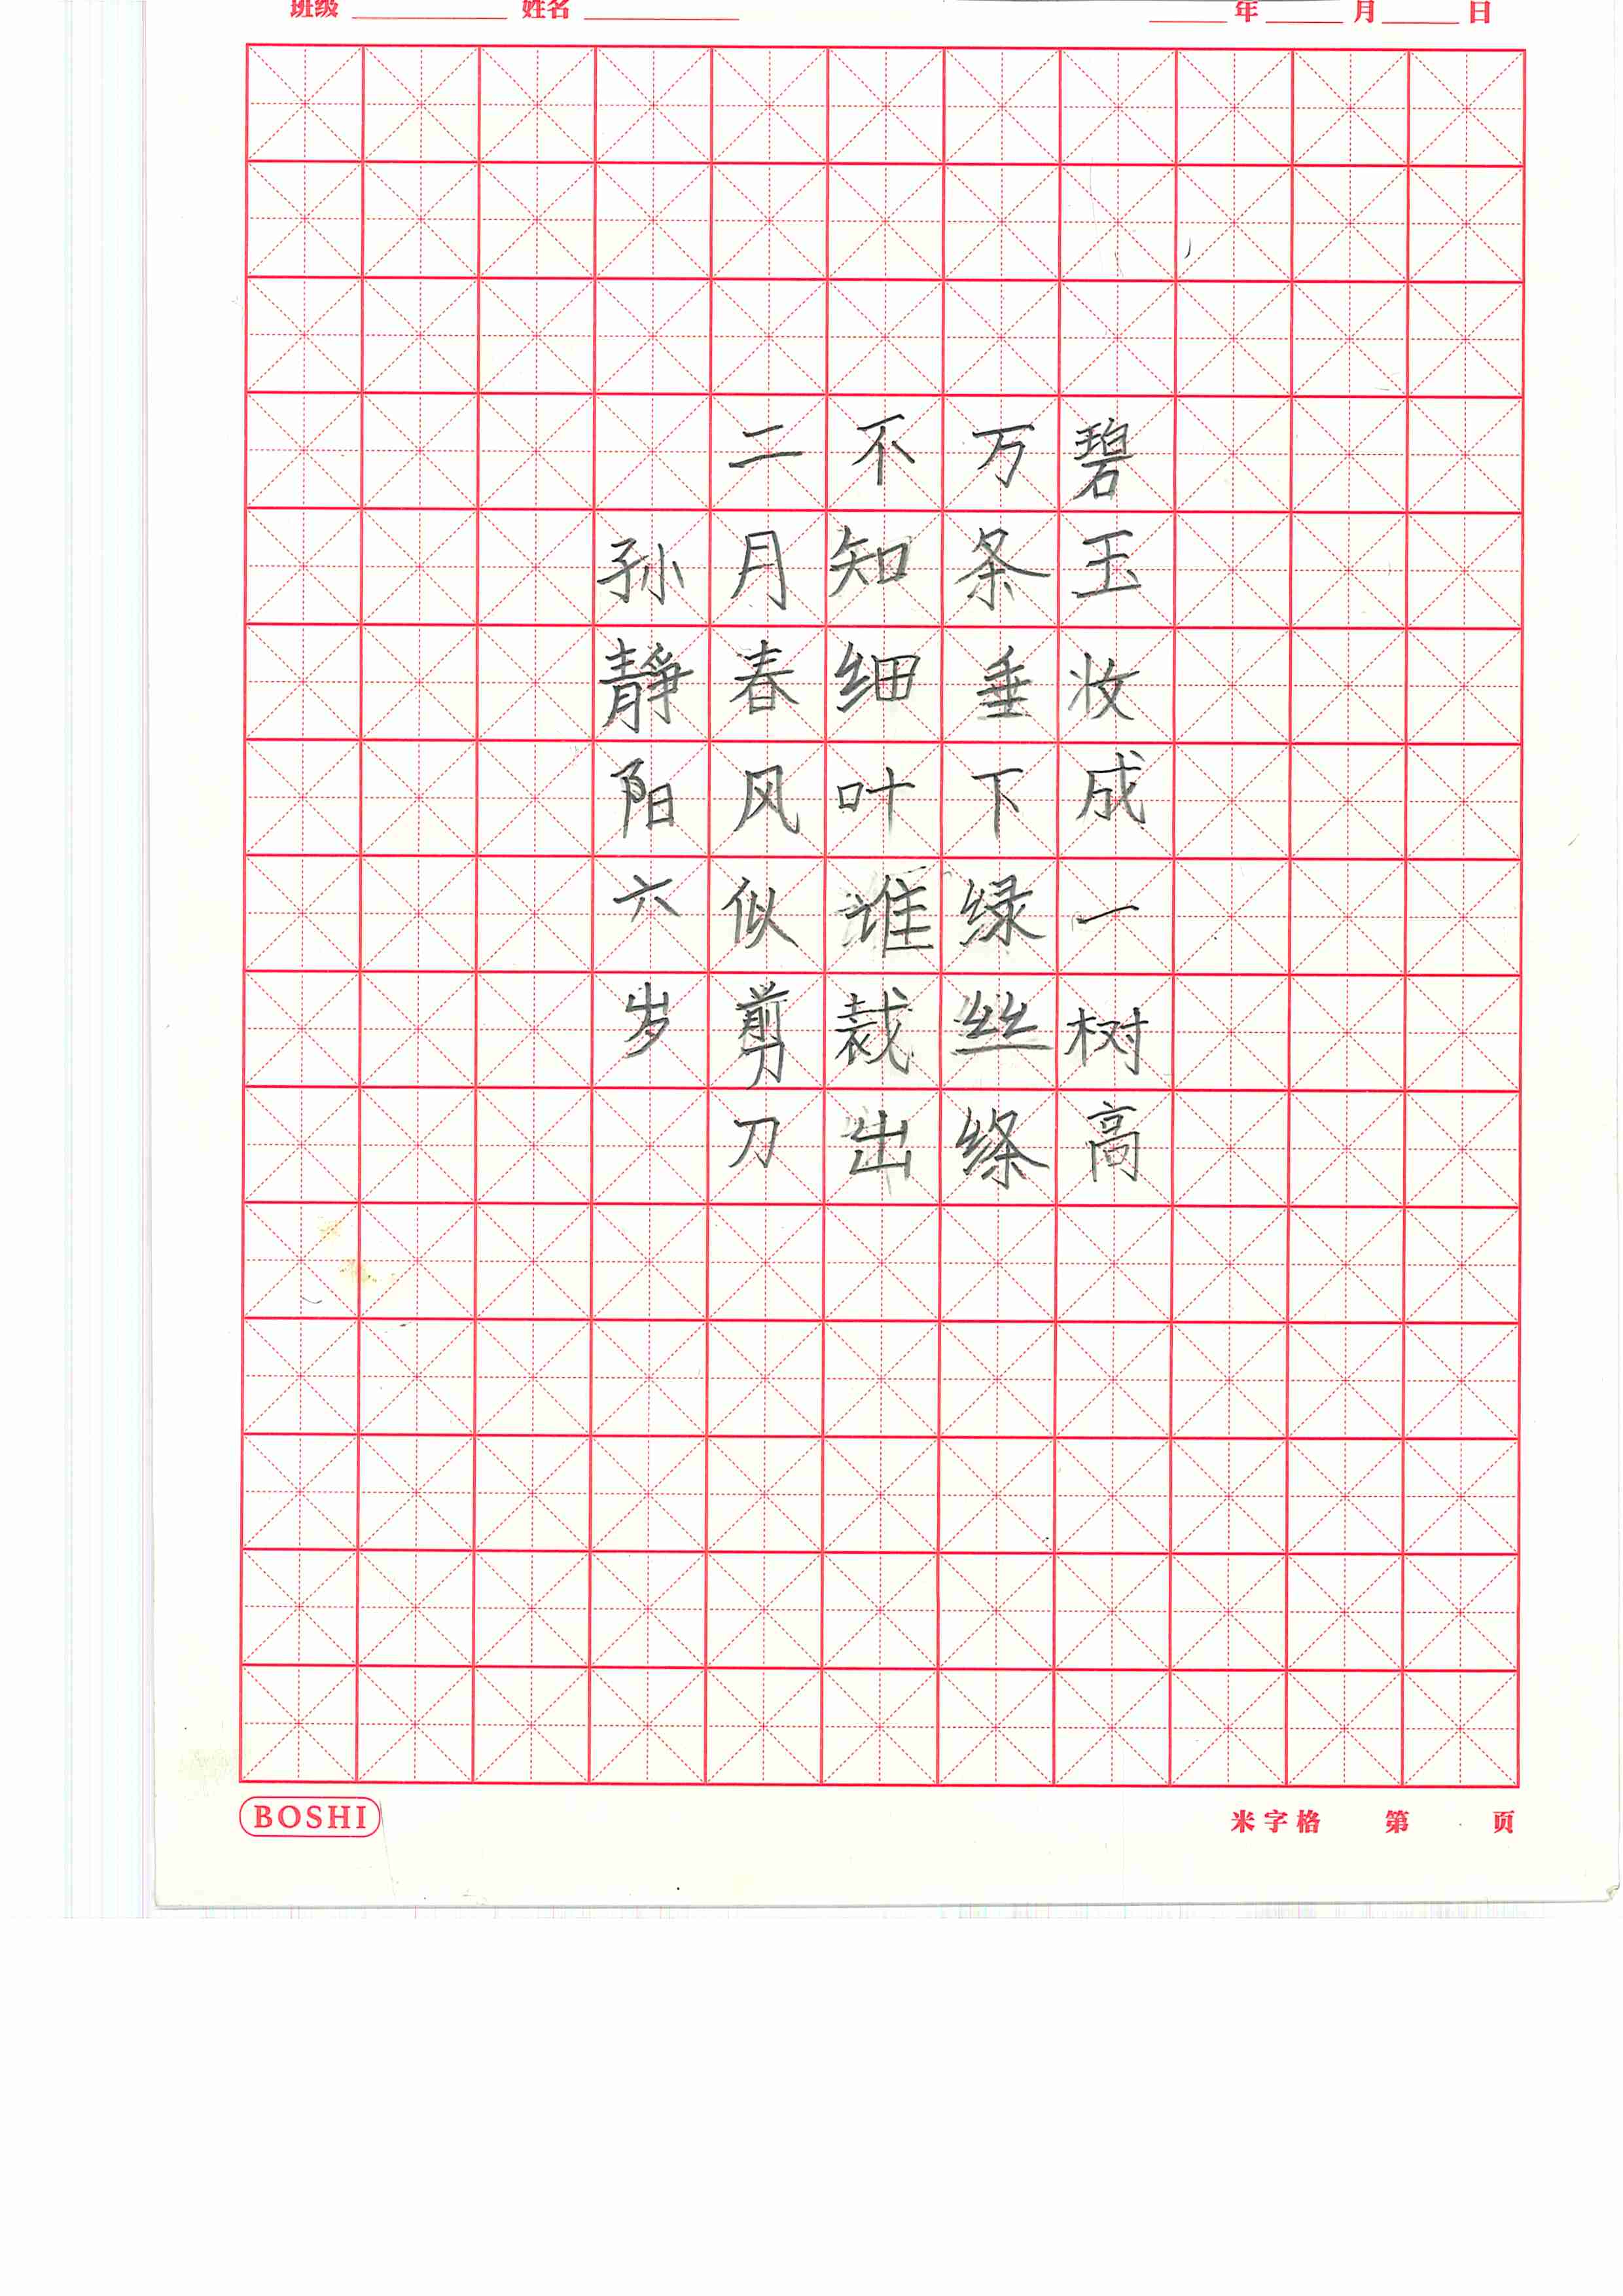 班级 姓名 年 月 日
碧玉妆成一树高
万条垂下绿丝绦
不知细叶谁裁出
二月春风似剪刀
孙静阳六岁
BOSHI 米字格 第 页